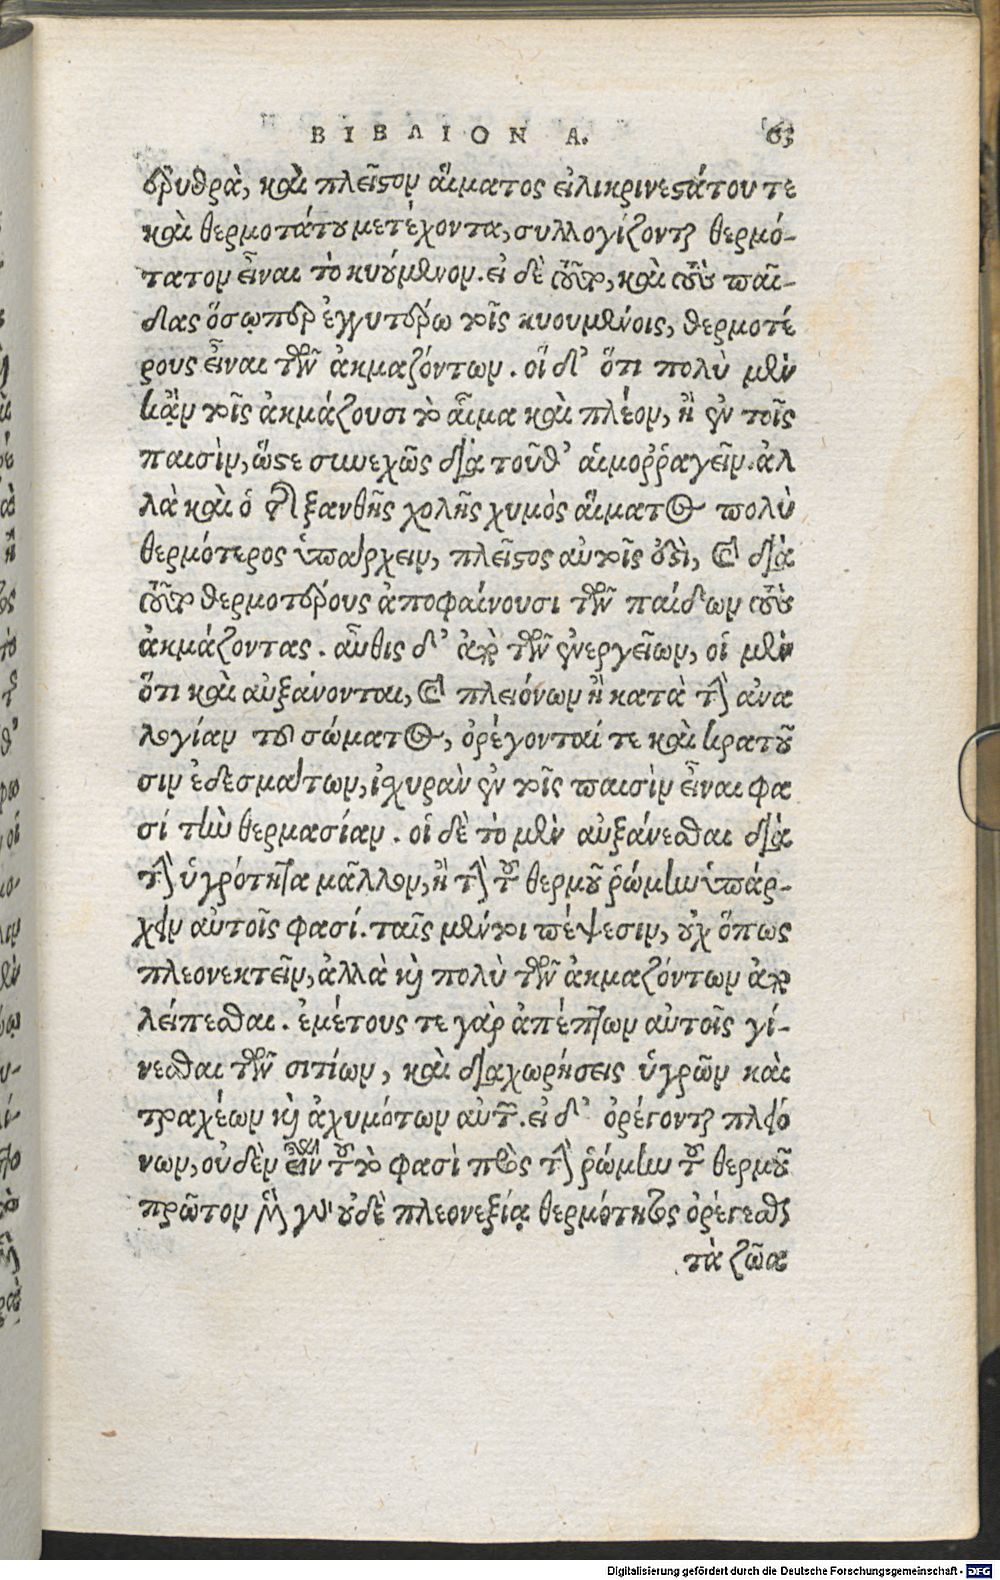 ΒΙΒΛΙΟΝ Α. 63
ἐρυθρὰ, καὶ πλεῖστον αἵματος εἰλικρινεστάτου τε
καὶ θερμοτάτου μετέχοντα, συλλογίζονται θερμό-
τατον εἶναι τὸ κυούμενον. εἰ δὲ τοῦτο, καὶ τοὺς παῖ-
δας ὅσῳπερ ἐγγυτέρω τοῖς κυουμένοις, θερμοτέ
ρους εἶναι τῶν ἀκμαζόντων. οἵ δ’ ὅτι πολὺ μὲν
κᾂν τοῖς ἀκμάζουσι τὸ αἷμα καὶ πλέον, ἢ ἐν τοῖς
παισὶν, ὥστε συνεχῶς διὰ τοῦθ’ αἱμοῤῥαγεῖν. ἀλ
λὰ καὶ ὁ τῆς ξανθῆς χολῆς χυμὸς αἵματος πολὺ
θερμότερος ὑπάρχειν, πλεῖστος αὐτοῖς ἐστὶ, καὶ διὰ
τοῦτο θερμοτέρους ἀποφαίνουσι τῶν παίδων τοὺς
ἀκμάζοντας. αὖθις δ’ ἀπὸ τῶν ἐνεργείων, οἱ μὲν
ὅτι καὶ αὐξάνονται, καὶ πλειόνων ἢ κατὰ τὴν ἀνα
λογίαν τοῦ σώματος, ὀρέγονταί τε καὶ κρατοῦ
σιν ἐδεσμάτων, ἰσχυρὰν ἐν τοῖς παισὶν εἶναι φα
σί τὴν θερμασίαν. οἱ δὲ τὸ μὲν αὐξάνεσθαι διὰ
τὴν ὑγρότητα μᾶλλον, ἢ τὴν τοῦ θερμοῦ ῥώμην ὑπάρ-
χειν αὐτοῖς φασί. ταῖς μέντοι πέψεσιν, οὐχ ὅπως
πλεονεκτεῖν, ἀλλὰ καὶ πολὺ τῶν ἀκμαζόντων ἀπο
λείπεσθαι. ἐμέτους τε γὰρ ἀπέπτων αὐτοῖς γί-
νεσθαι τῶν σιτίων, καὶ διαχωρήσεις ὑγρῶν καὶ
τραχέων καὶ ἀχυμότων αὐτῶν. εἰ δ’ ὀρέγονται πλειό
νων, οὐδὲν εἶναι τοῦτό φασὶ πρὸς τὴν ῥώμην τοῦ θερμοῦ
πρῶτον μὲν γὰρ οὐδὲ πλεονεξίᾳ θερμότητος ὀρέγεσθαι
τὰ ζῶα
Digitalisierung gefördert durch die Deutsche Forschungsgemeinschaft - DFG